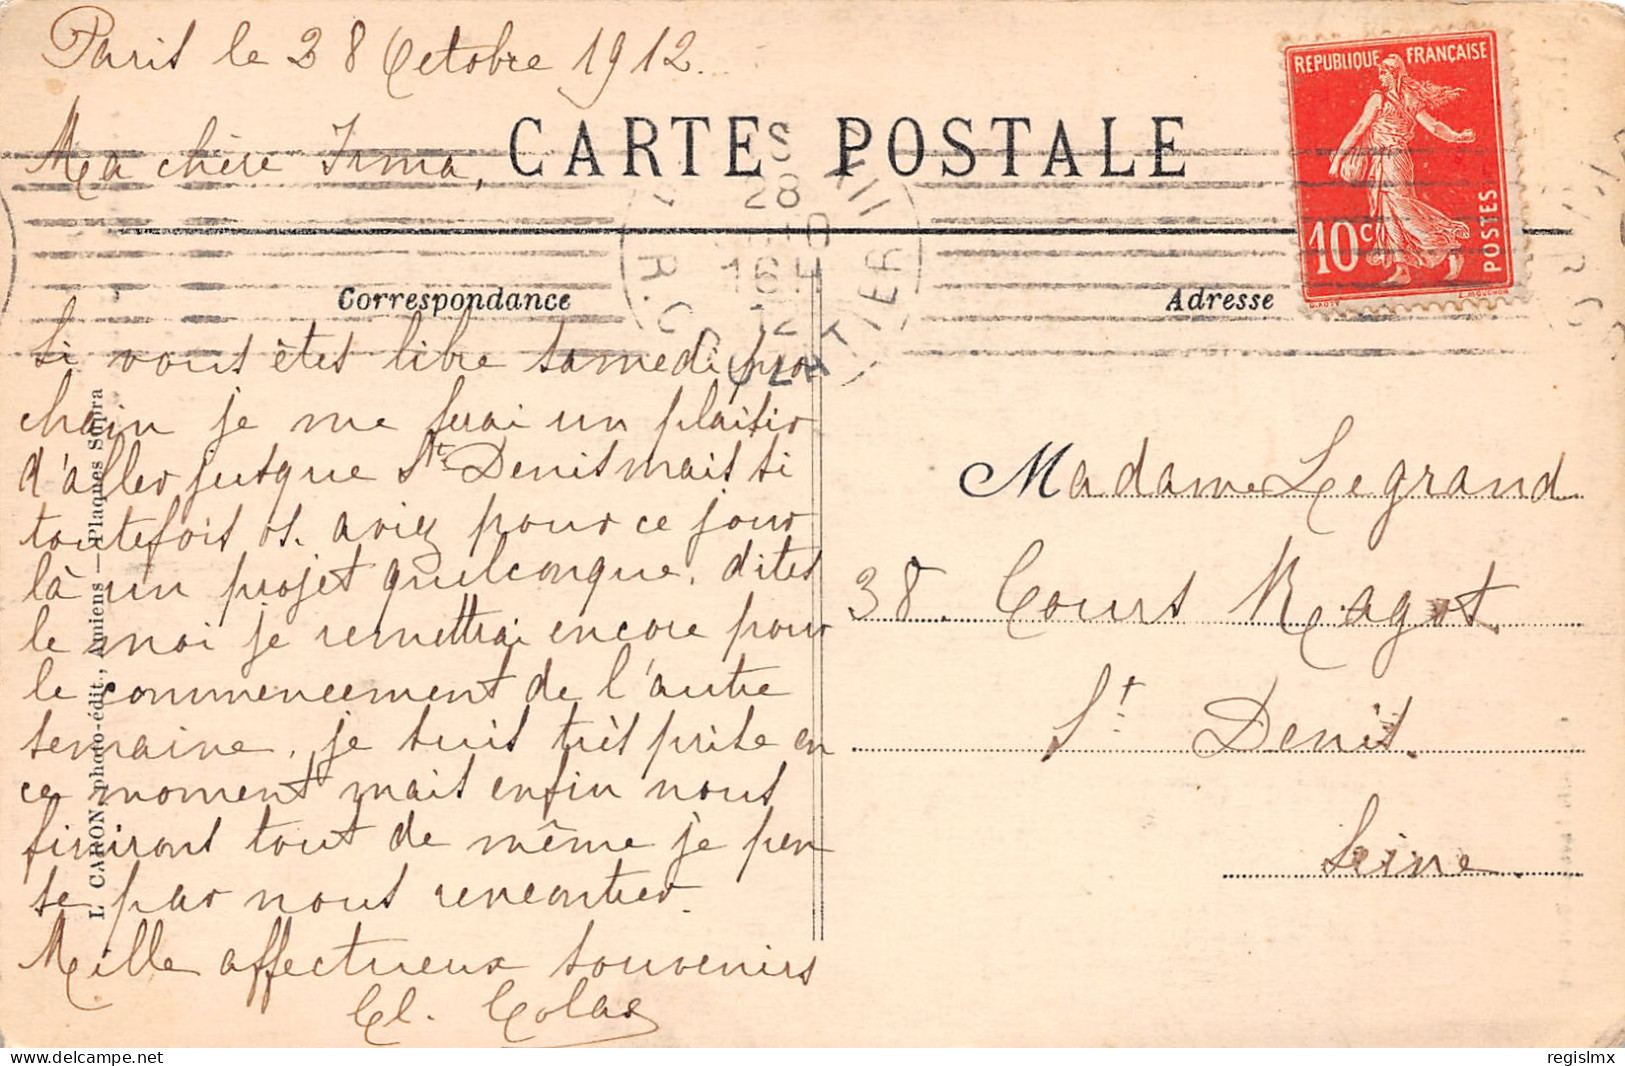 Paris le 28 Octobre 1912.
Ma chère Irma,
CARTE POSTALE
REPUBLIQUE FRANÇAISE
10c
POSTES
28
Correspondance
Adresse
Si vous êtes libre samedi pro
chain je me ferai un plaisir
d'aller jusque St Denis mais si
toutefois vs. aviez pour ce jour
là un projet quelconque, dites
le moi je remettrai encore pour
le commencement de l'autre
semaine, je suis très prise en
ce moment mais enfin nous
finirons tout de même je pen
se par nous rencontrer.
Mille affectueux souvenirs
Cl. Colas
L. CARON, photo-édit., Amiens — Plaques Supra
Madame Legrand
38. Cours Ragot.
St Denis.
Seine.
regislmx